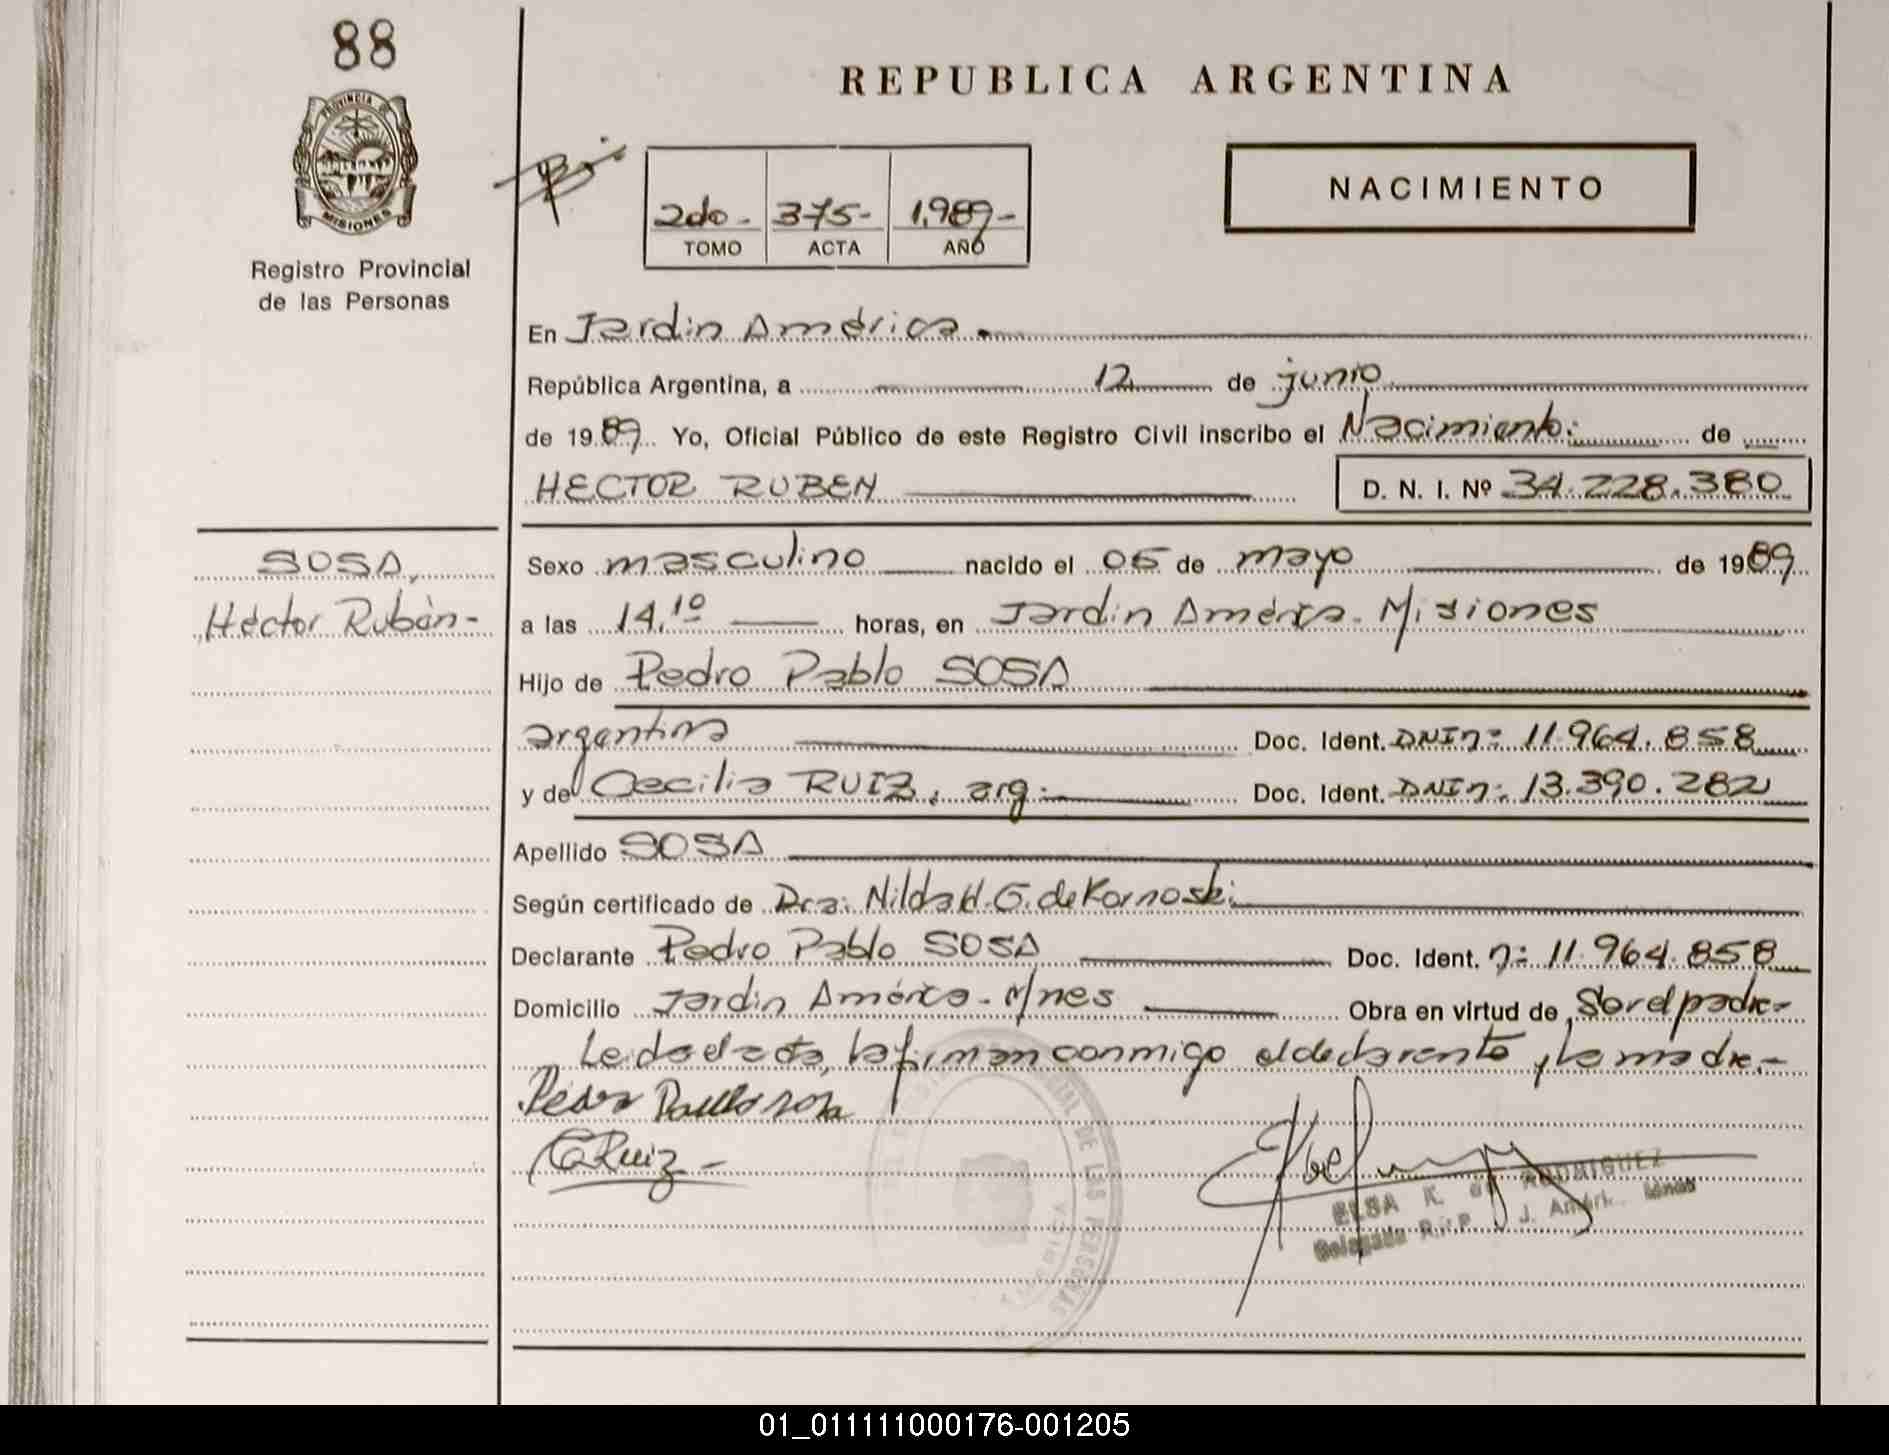 88
PROVINCIA DE
MISIONES
Registro Provincial
de las Personas
REPUBLICA ARGENTINA
2do - 375- 1.989-
TOMO ACTA AÑO
NACIMIENTO
En Jardin América.
República Argentina, a 12 de junio
de 1989 Yo, Oficial Público de este Registro Civil inscribo el Nacimiento. de
HECTOR RUBEN D. N. I. Nº 34.228.380
SOSA,
Héctor Rubén-
Sexo masculino nacido el 05 de mayo de 1989
a las 14.10 horas, en Jardin América. Misiones
Hijo de Pedro Pablo SOSA
argentina Doc. Ident. DNI n: 11.964.858
y de Cecilia RUIZ, arg. Doc. Ident. DNI n: 13.390.282
Apellido SOSA
Según certificado de Dra. Nilda H. G. de Kornoski
Declarante Pedro Pablo SOSA Doc. Ident. n: 11.964.858
Domicilio Jardin América - Mnes Obra en virtud de Ser el padre-
Leida el acta, la firman conmigo el declarante y la madre.-
Pedro Pablo sosa
C Ruiz -
ELSA K. de RODRIGUEZ
Delegada R.P.P. J. Amér. Mnes
DE LAS PERSONAS
01_011111000176-001205